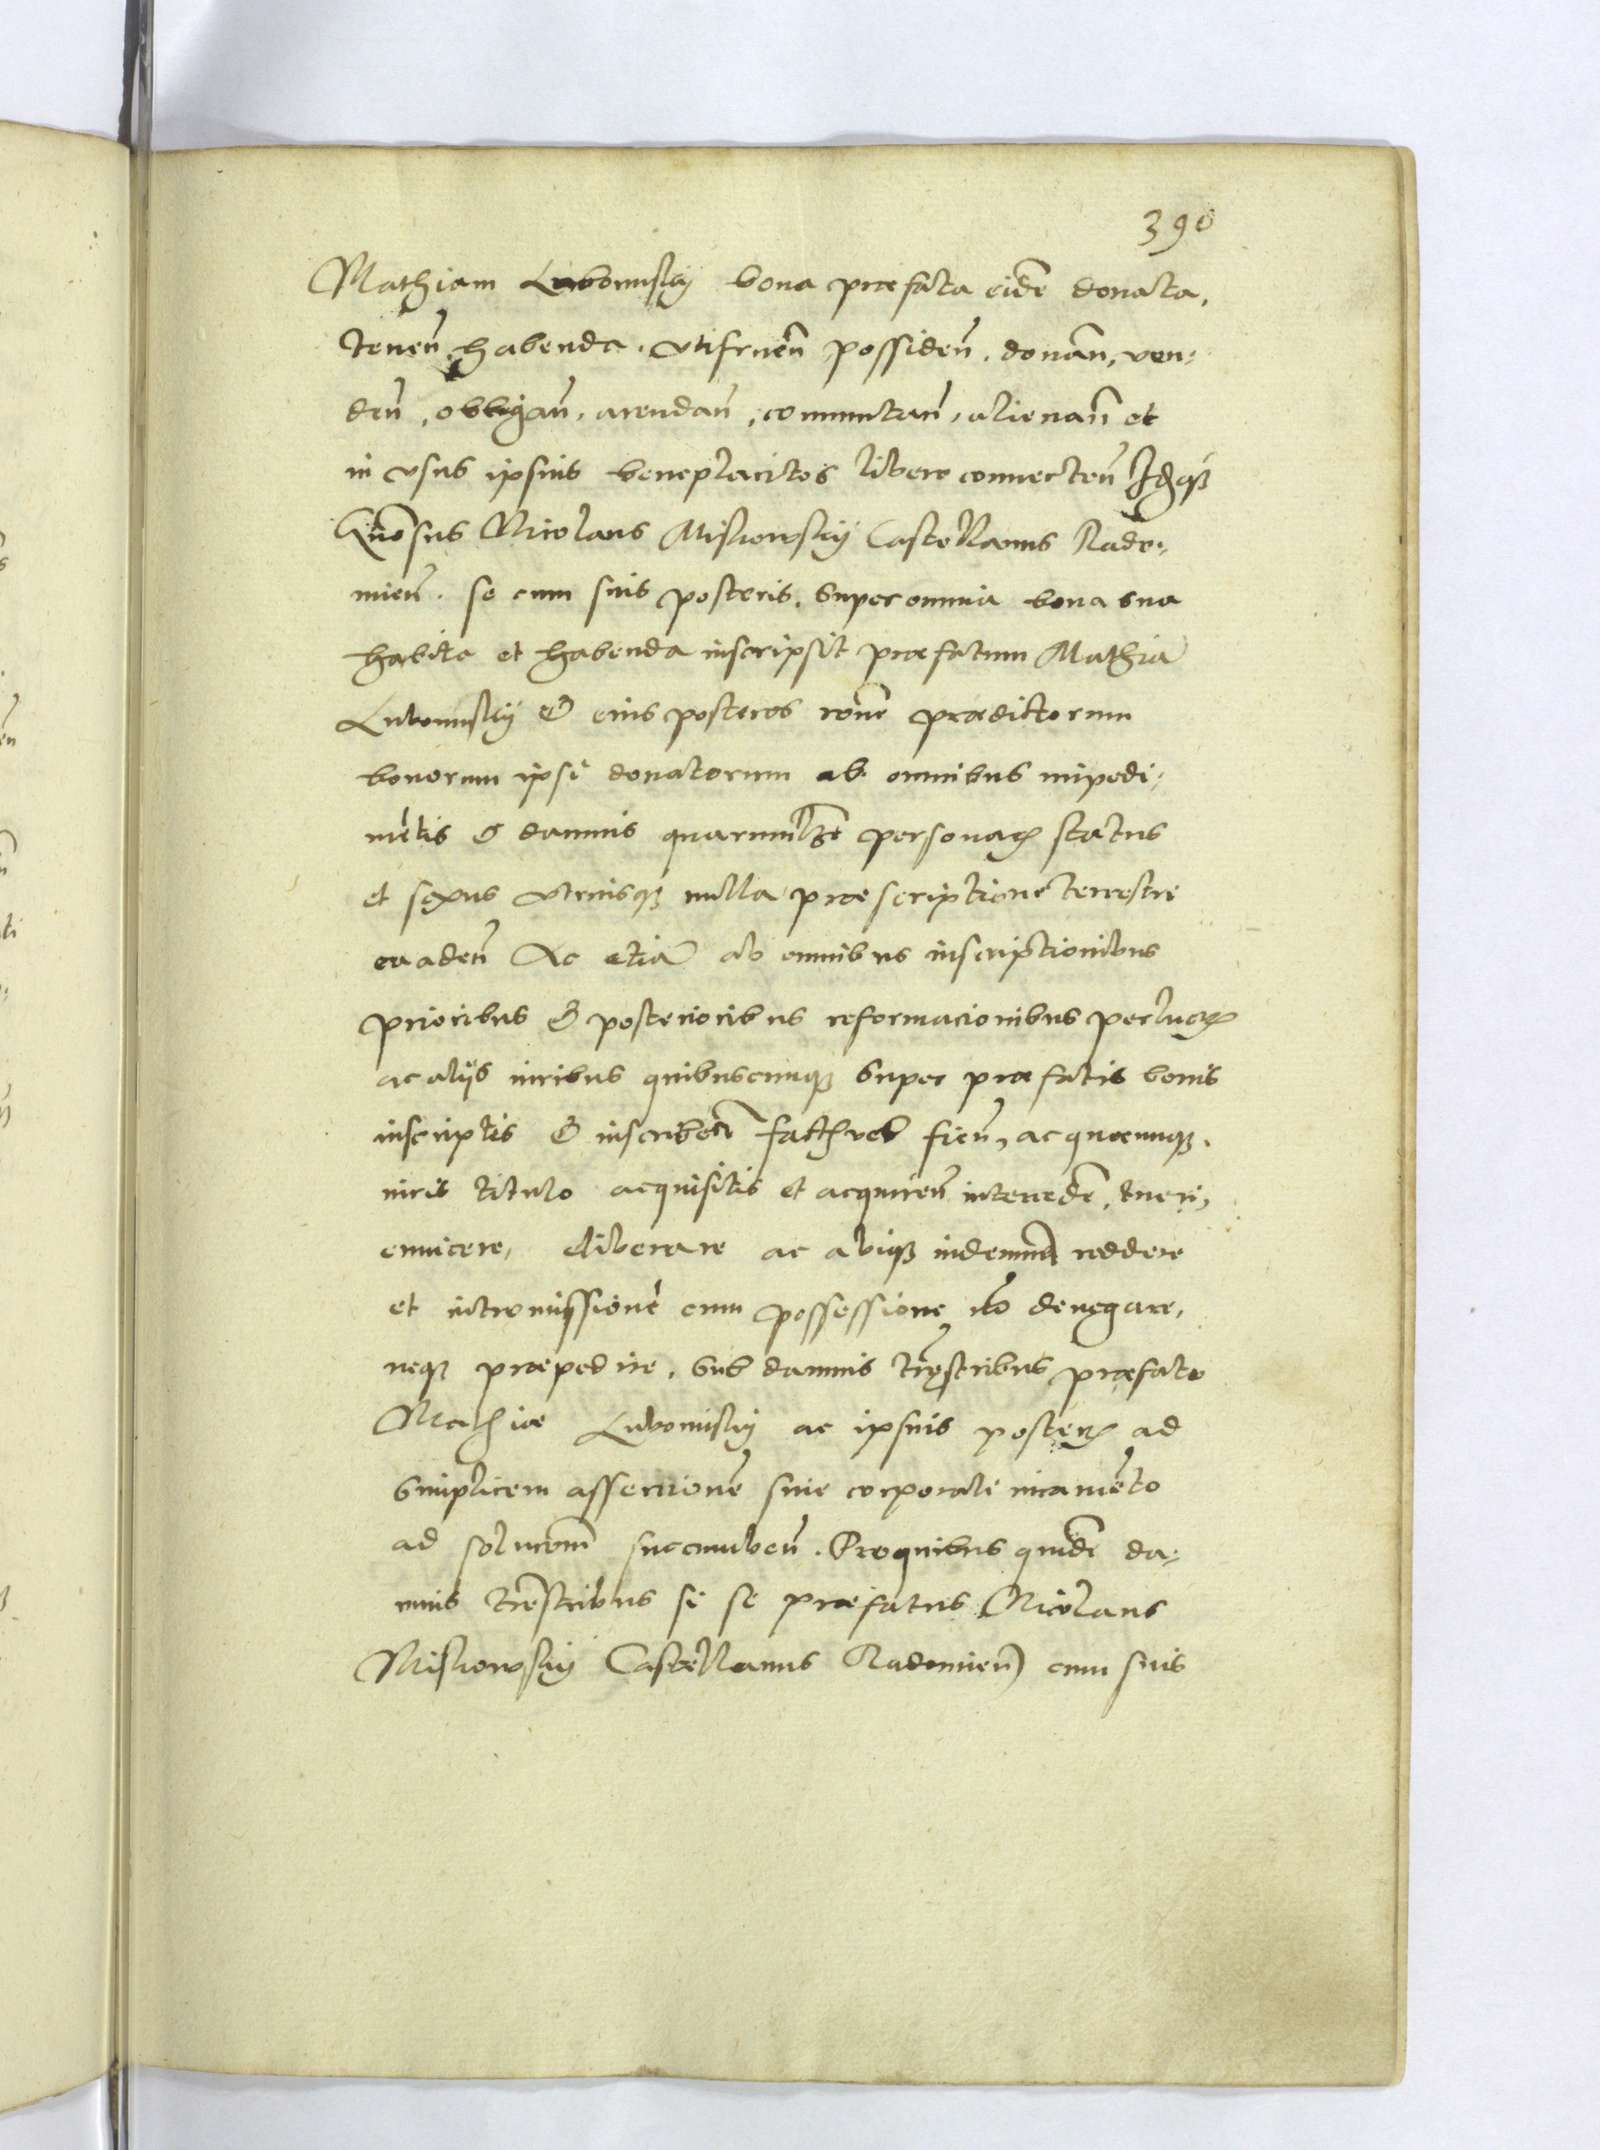 390
Mathiam Lubomskij bona præfata eidē donata,
tenen̄, habenda, vtifruen̄ possiden̄, donan̄, ven:
den̄, obligan̄, arendan̄, comutan̄, alienan̄ et
in vsus ipsius beneplacitos libere conuerten̄
Gn̄osus Nicolaus Misiowskij Castellanus Rado:
mien̄. se cum suis posteris. super omnia bona sua
habita et habenda inscripsit præfatum Mathiā
Lubomskij & eius posteros rōne prædictorum
bonorum ipsi donatorum ab omnibus impedi:
mētis & damnis quarumlibet personarꝝ status
et sexus vtriusqꝫ nulla præscriptione terrestre
euaden̄ Ac etiā ab omnibus inscriptionibus
prioribus & posterioribus reformacionibus perlucrꝝ
ac alijs iuribus quibuscunqꝫ super præfatis bonis
inscriptis & inscriben̄ fact vel fien̄, ac quocunqꝫ
iuris titulo acquisitis et acquiren̄ interceden̄, tueri,
euincere, eliberare ac vbiqꝫ indemnē reddere
et intromissionē cum possessione nō denegare,
neqꝫ præpedire, sub damnis trēstribus præfato
Mathiæ Lubomskij ac ipsius posterꝝ ad
simplicem assercionē siue corporali iuramēto
ad solucionē succumben̄. Pro quibus quidē da:
mnis trēstribus si se præfatus Nicolaus
Misiowskij Castellanus Radomien̄ cum suis